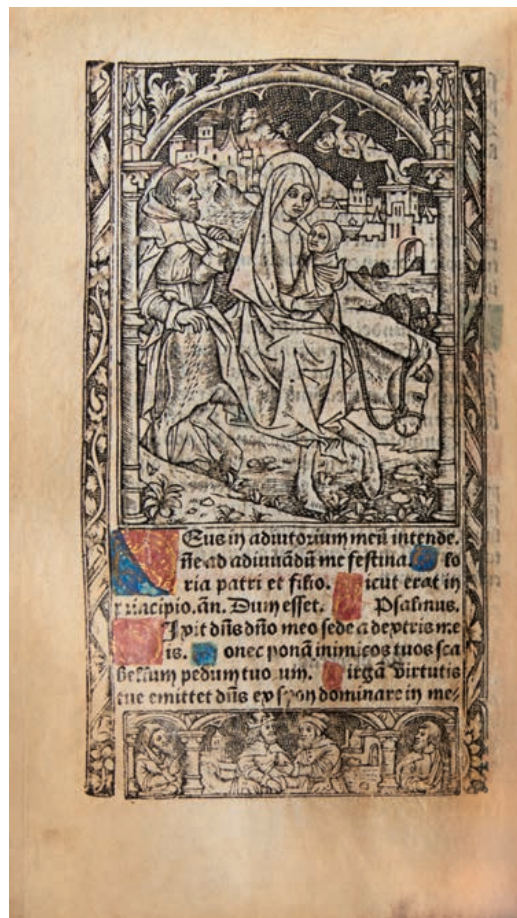 Eus in adiutorium meū intende.
ñe ad adiuuādū me festina. lo
ria patri et filio. icut erat in
principio. añ. Dum esset. Psalmus.
Ixit dñs dño meo sede a dextris me
is. onec ponā inimicos tuos sca
bellum pedum tuo um. irgā virtutis
tue emittet dñs ex syon dominare in me-